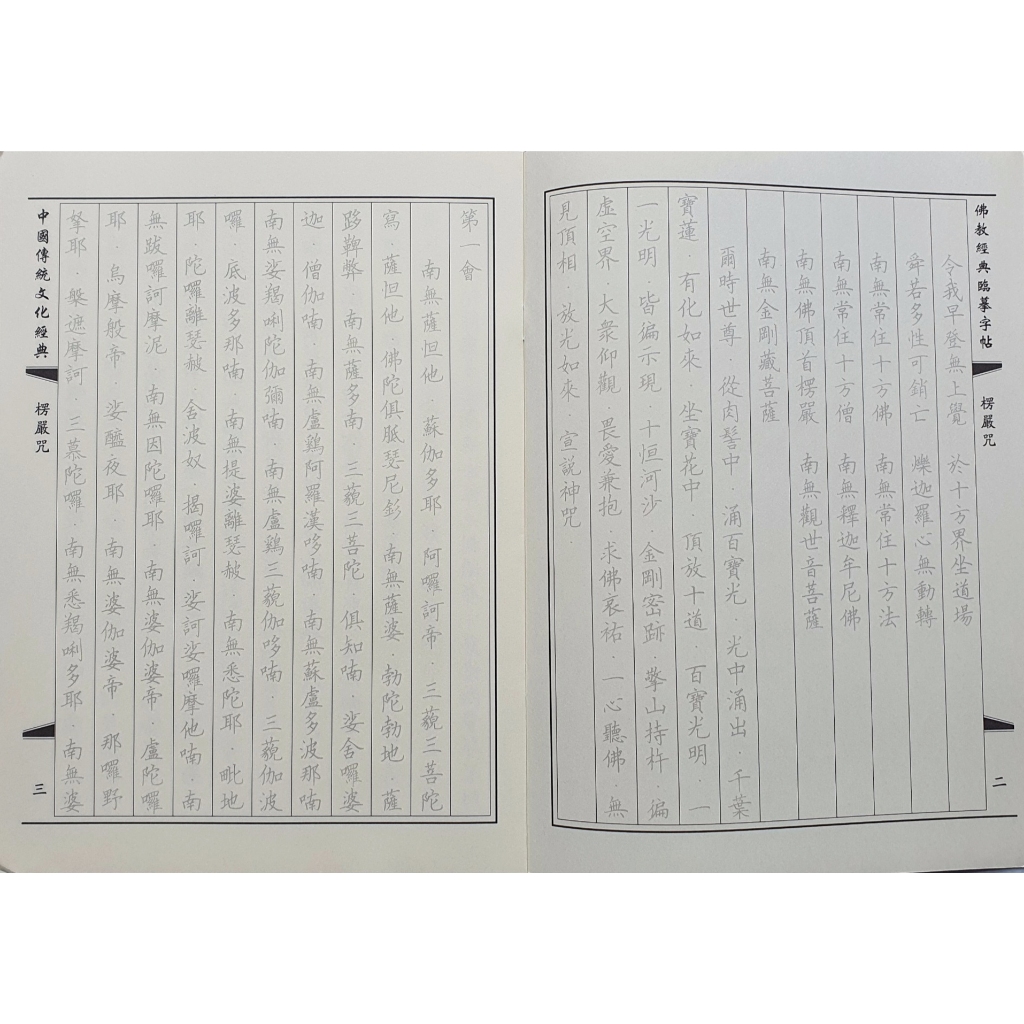 佛教經典臨摹字帖 楞嚴咒 二
令我早登無上覺 於十方界坐道場
舜若多性可銷亡 爍迦羅心無動轉
南無常住十方佛 南無常住十方法
南無常住十方僧 南無釋迦牟尼佛
南無佛頂首楞嚴 南無觀世音菩薩
南無金剛藏菩薩
爾時世尊．從肉髻中．涌百寶光．光中涌出．千葉
寶蓮．有化如來．坐寶花中．頂放十道．百寶光明．一
一光明．皆徧示現．十恒河沙．金剛密跡．擎山持杵．徧
虛空界．大衆仰觀．畏愛兼抱．求佛哀祐．一心聽佛．無
見頂相．放光如來．宣説神咒．
第一會
南無薩怛他．蘇伽多耶．阿囉訶帝．三藐三菩陀
寫．薩怛他．佛陀俱胝瑟尼釤．南無薩婆．勃陀勃地．薩
跢鞞弊．南無薩多南．三藐三菩陀．俱知喃．娑舍囉婆
迦．僧伽喃．南無盧鷄阿羅漢哆喃．南無蘇盧多波那喃
南無娑羯唎陀伽彌喃．南無盧鷄三藐伽哆喃．三藐伽波
囉．底波多那喃．南無提婆離瑟赧．南無悉陀耶．毗地
耶．陀囉離瑟赧．舍波奴．揭囉訶．娑訶娑囉摩他喃．南
無跋囉訶摩泥．南無因陀囉耶．南無婆伽婆帝．盧陀囉
耶．烏摩般帝．娑醯夜耶．南無婆伽婆帝．那囉野
拏耶．槃遮摩訶．三慕陀囉．南無悉羯唎多耶．南無婆
中國傳統文化經典 楞嚴咒 三